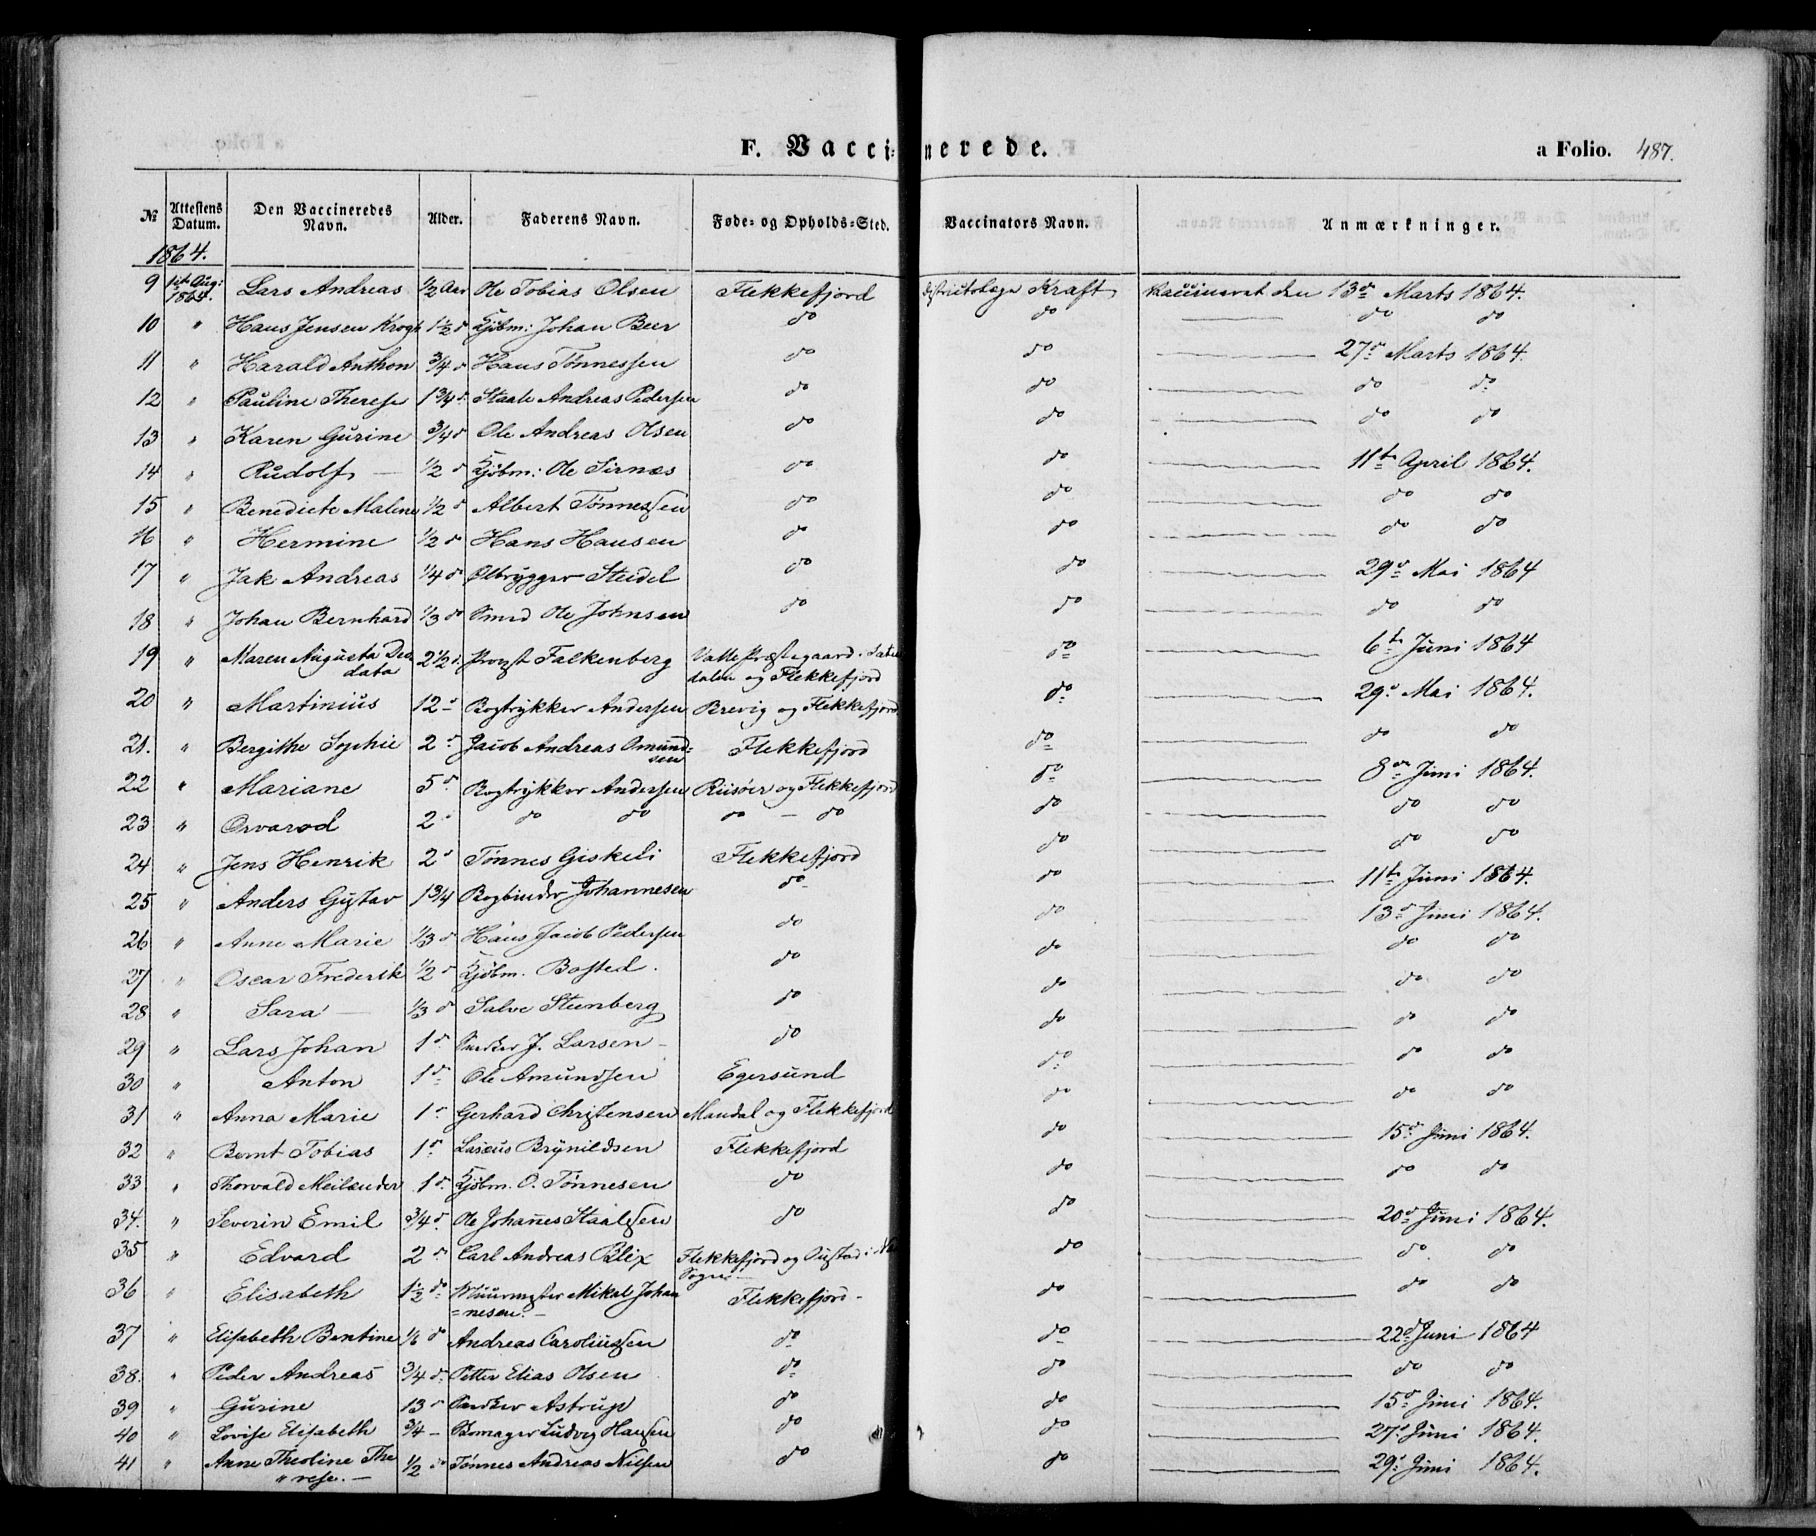 F. Vaccinerede. a Folio. 487.
№ Attestens Datum. Den Vaccineredes Navn. Alder. Faderens Navn. Føde- og Opholds-Sted. Vaccinators Navn. Anmærkninger.
1864.
9 1ste Aug: 1864. Lars Andreas 1/2 Aar Ole Tobias Olsen Flekkefjord Kraft Vaccineret den 13de Marts 1864.
10 " Hans Jensen Krogh 1 1/2 do Kjøbm: Johan Beer do do do do
11 " Harald Anthon 3/4 do Hans Tønnessen do do 27de Marts 1864.
12 " Pauline Therese 1 3/4 do Staale Andreas Pedersen do do do do
13 " Karen Gurine 3/4 do Ole Andreas Olsen do do do do
14 " Rudolf 1/2 do Kjøbm: Ole Sirnæs do do 11te April 1864.
15 " Benedicte Malene 1/2 do Albert Tønnessen do do do do
16 " Hermine 1/2 do Hans Hansen do do do do
17 " Jak Andreas 1/4 do Ølbrygger Steidel do do 29de Mai 1864
18 " Johan Bernhard 1/3 do Smed Ole Johnsen do do do do
19 " Maren Augusta Deo- 2 1/2 d. Provst Falkenberg Valle Præstegaard i do 6te Juni 1864
data dalen og Flekkefjord
20 " Martinius 12 do Bogtrykker Andersen Brevig og Flekkefjord do 29de Mai 1864.
21. " Bergithe Sophie 2 do Jacob Andreas Omund- Flekkefjord do do do
sen
22 " Mariane 5 do Bogtrykker Andersen Riisøer og Flekkefjord do 8de Juni 1864.
23 " Orvarod 2 do do do do - do do do do
24 " Jens Henrik 2 do Tønnes Giskeli Flekkefjord do do do
25 " Anders Gustav 1 3/4 Bogbinder Johannesen do do 11te Juni 1864.
26 " Anne Marie 1/3 do Hans Jacob Pedersen do do 13de Juni 1864.
27 " Oscar Frederik 1/2 do Kjøbm. Bosted. do do do do
28 " Sara 1/3 do Salve Steenberg do do do do
29 " Lars Johan 1 do Snedker J. Larsen do do do do
30 " Anton 1 do Ole Amundsen Egersund do do do
31 " Anna Marie 1 do Gerhard Christensen Mandal og Flekkefjord do do do
32 " Bernt Tobias 1 do Brynildsen Flekkefjord do 15de Juni 1864.
33 " Thorvald Meilænder 1 do. Kjøbm. O. Tønnesen do do do do
34. " Severin Emil 3/4 do. Ole Johanes Staalesen do do 20de Juni 1864.
35 " Edvard 2 do Carl Andreas Blix Flekkefjord og do do do
Sogn
36 " Elisabeth 1 1/2 do Muurmester Mikal Johan Flekkefjord do do do
=nesen.
37 " Elisabeth Bentine 1/6 do Andreas Caroliussen do do 22de Juni 1864
38. " Peder Andreas 3/4 do. Petter Elias Olsen do do do do
39 " Gurine 13 do Snedker Astrup do do 15de Juni 1864.
40 " Lovise Elisabeth 3/4 - Ludvig Hansen do do 27de Juni 1864.
41 " Anne Theoline The 1/2 do Tønnes Andreas Nilsen do do 29de Juni 1864.
" rese.